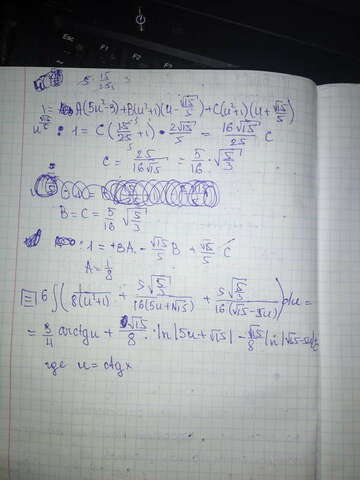 Esc F1 F2 F3
1 = A(5u²-3)+B(u²+1)(u-√15/5)+C(u²+1)(u+√15/5)
u √15/5 : 1 = C(15/25+1)·2√15/5 = 16√15/25 C
C = 25/16√15 = 5/16·√(5/3)
B = C = 5/16 √(5/3)
A = 1/8
6∫(1/8(u²+1) + 5√(5/3)/16(5u+√15) + 5√(5/3)/16(√15-5u))du =
= 3/4 arctgu + √15/8·ln|5u+√15| - √15/8 ln|√15-5u|
где u = ctgx